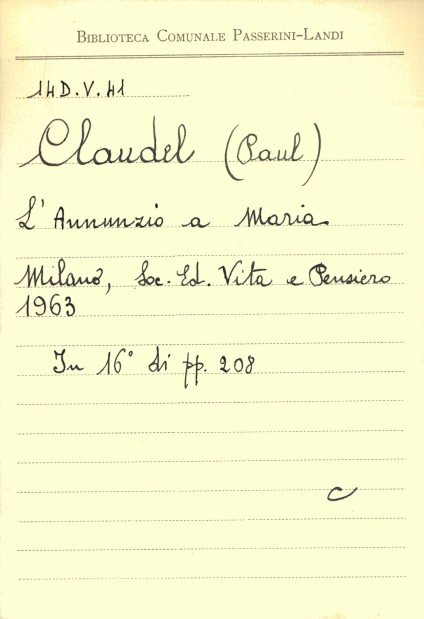 BIBLIOTECA COMUNALE PASSERINI-LANDI
14D.V.41
Claudel (Paul)
L'Annunzio a Maria
Milano, Soc. Ed. Vita e Pensiero
1963
In 16° di pp. 208
C